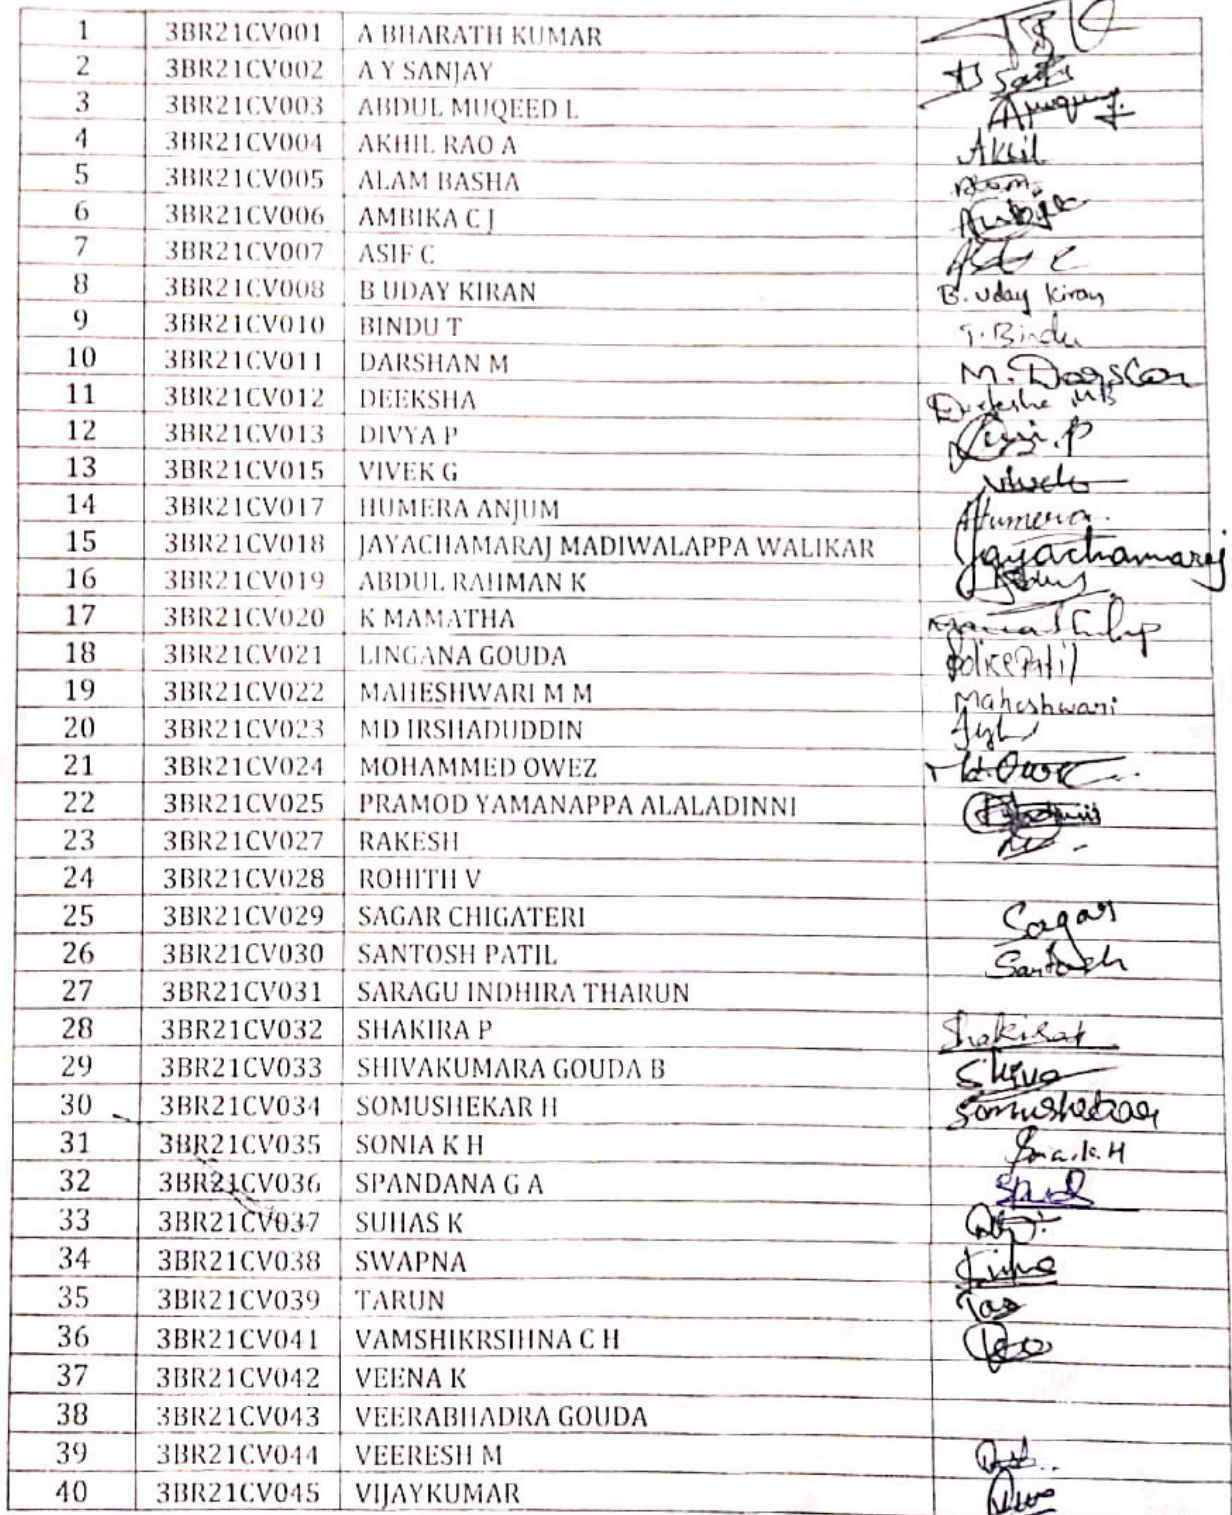 1 3BR21CV001 A BHARATH KUMAR
2 3BR21CV002 A Y SANJAY
3 3BR21CV003 ABDUL MUQEED L
4 3BR21CV004 AKHIL RAO A Akhil
5 3BR21CV005 ALAM BASHA
6 3BR21CV006 AMBIKA C J
7 3BR21CV007 ASIF C
8 3BR21CV008 B UDAY KIRAN B. Uday Kiran
9 3BR21CV010 BINDU T T. Bindu
10 3BR21CV011 DARSHAN M M. Darshan
11 3BR21CV012 DEEKSHA
12 3BR21CV013 DIVYA P
13 3BR21CV015 VIVEK G
14 3BR21CV017 HUMERA ANJUM Humera
15 3BR21CV018 JAYACHAMARAJ MADIWALAPPA WALIKAR Jayachamaraj
16 3BR21CV019 ABDUL RAHMAN K
17 3BR21CV020 K MAMATHA
18 3BR21CV021 LINGANA GOUDA
19 3BR21CV022 MAHESHWARI M M Maheshwari
20 3BR21CV023 MD IRSHADUDDIN
21 3BR21CV024 MOHAMMED OWEZ
22 3BR21CV025 PRAMOD YAMANAPPA ALALADINNI
23 3BR21CV027 RAKESH
24 3BR21CV028 ROHITH V
25 3BR21CV029 SAGAR CHIGATERI Sagar
26 3BR21CV030 SANTOSH PATIL Santosh
27 3BR21CV031 SARAGU INDHIRA THARUN
28 3BR21CV032 SHAKIRA P
29 3BR21CV033 SHIVAKUMARA GOUDA B Shiva
30 3BR21CV034 SOMUSHEKAR H Somushekar
31 3BR21CV035 SONIA K H Sonia.K.H
32 3BR21CV036 SPANDANA G A
33 3BR21CV037 SUHAS K
34 3BR21CV038 SWAPNA
35 3BR21CV039 TARUN
36 3BR21CV041 VAMSHIKRSIHNA C H
37 3BR21CV042 VEENA K
38 3BR21CV043 VEERABHADRA GOUDA
39 3BR21CV044 VEERESH M
40 3BR21CV045 VIJAYKUMAR